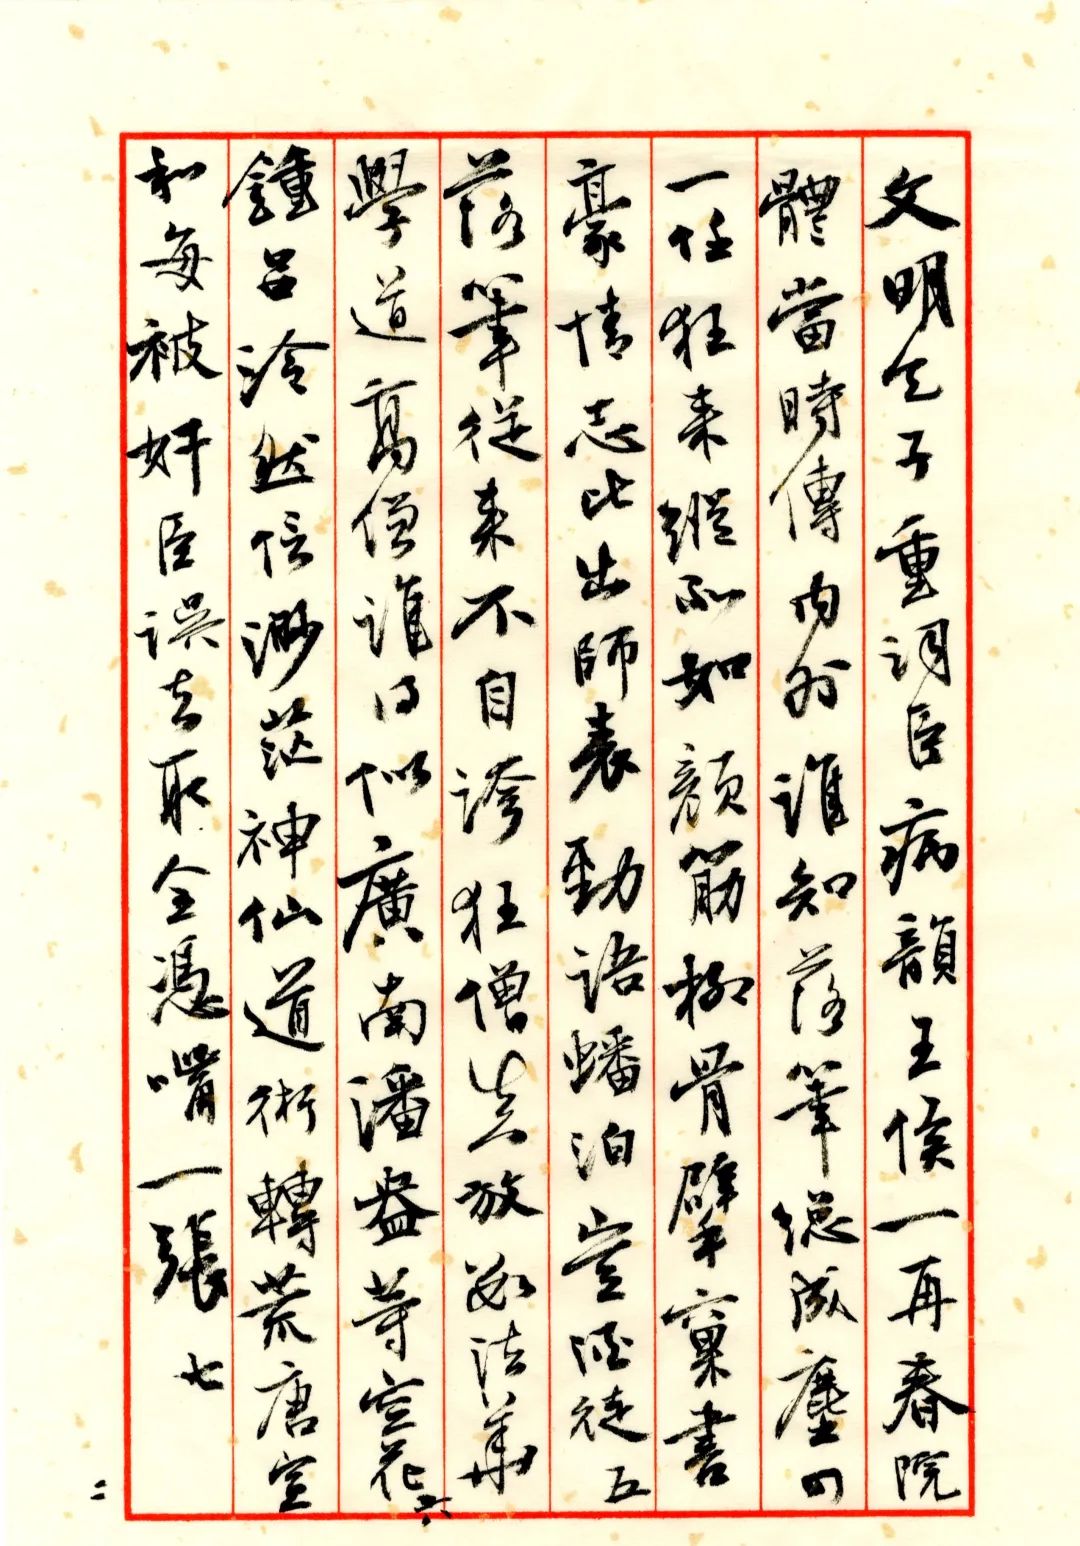 文明天子重詞臣病韻王侯一再春院
體當時傳內外誰知落筆總成塵四
一任狂來縱所如顏筋柳骨擘窠書
豪情志比出師表勁語蟠泊豈徒五
落筆從來不自誇狂僧放法華
學道高僧誰得似廣南潘盎等空花六
鍾呂泠然信渺茫神仙道術轉荒唐宣
和每被奸臣誤去取全憑嘴一張七
二